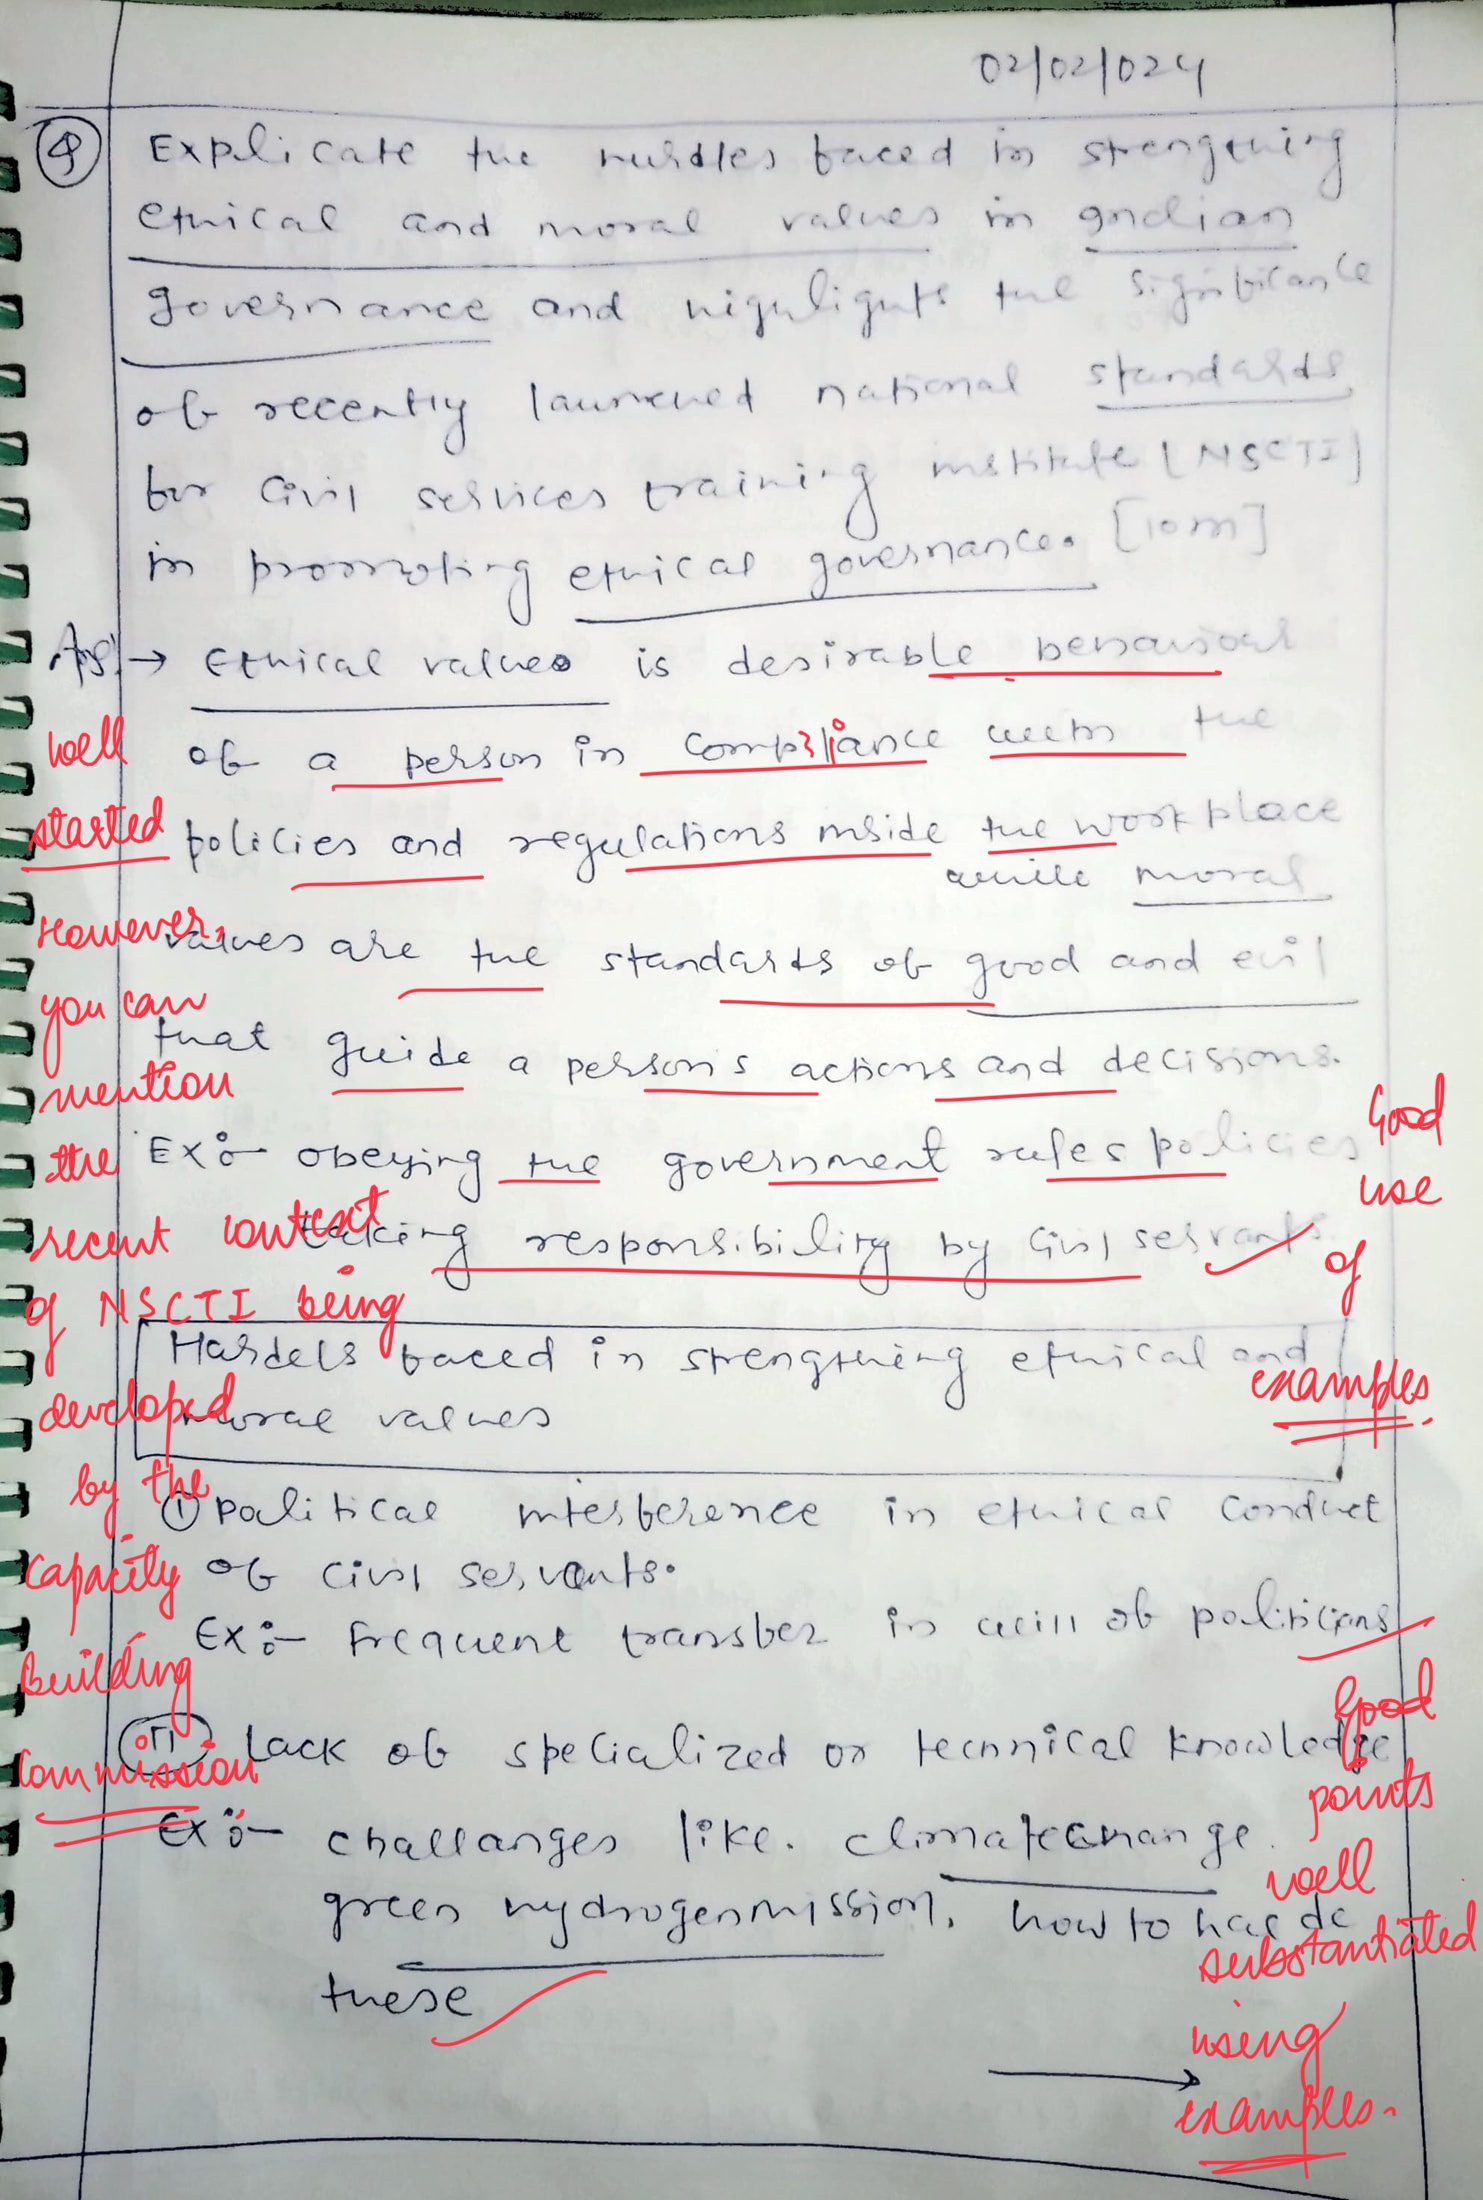 02/02/024
Q Explicate the hurdles faced in strengthing
ethical and moral values in Indian
governance and highlights the significance
of recently launched national standards
for Civil services training institute [NSCTI]
in promoting ethical governance. [10m]
Ans:→ Ethical values is desirable behaviour
of a person in compliance with the
policies and regulations inside the workplace
while moral
values are the standards of good and evil
that guide a person's actions and decisions.
Ex:- obeying the government rules policies
taking responsibility by Civil servants.
Hardels faced in strengthing ethical and
moral values
① Political interference in ethical conduct
of civil servants.
Ex:- Frequent transfer in will of politicians
II Lack of specialized or technical knowledge
Ex:- challanges like. climate change.
green hydrogen mission. how to
these
well
started
However,
you can
mention
the
recent context
of NSCTI being
developed
by the
Capacity
Building
Commission
Good
use
of
examples.
Good
points
well
substantiated
using
examples.